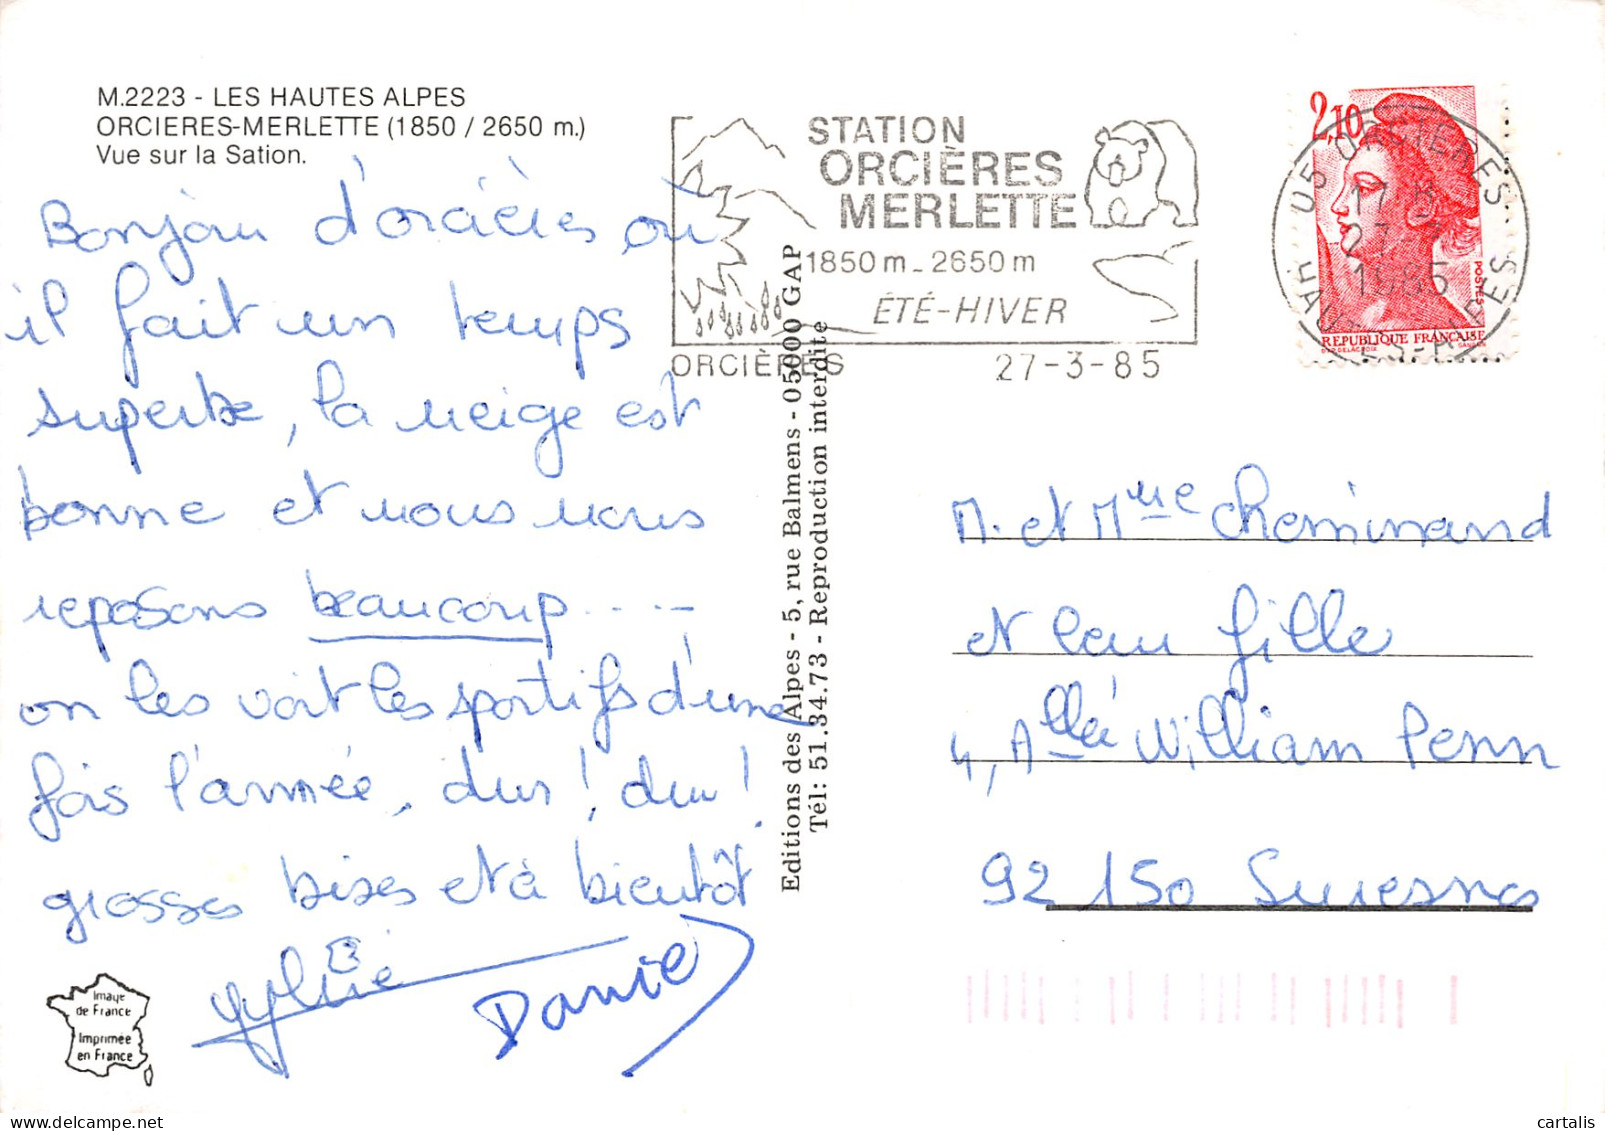 M.2223 - LES HAUTES ALPES
ORCIERES-MERLETTE (1850 / 2650 m.)
Vue sur la Sation.
Bonjour d'orcières où
il fait un temps
superbe, la neige est
bonne et nous nous
reposons beaucoup.....
on les voit les sportifs d'une
fois l'année, dur! dur!
grosses bises et à bientôt
Sylvie
Daniel
Image
de France
Imprimée
en France
Editions des Alpes - 5, rue Balmens - 05000 GAP
Tél: 51.34.73 - Reproduction interdite
STATION
ORCIÈRES
MERLETTE
1850 m - 2650 m
ÉTÉ-HIVER
ORCIÈRES 27-3-85
2,10
POSTES
REPUBLIQUE FRANÇAISE
D'AP. DELACROIX GANDON
05 ORCIERES
17 H
27-3
1985
HAUTES-ALPES
M. et Mme Cheminand
et leur fille
4, Allée William Penn
92 150 Suresnes
cartalis